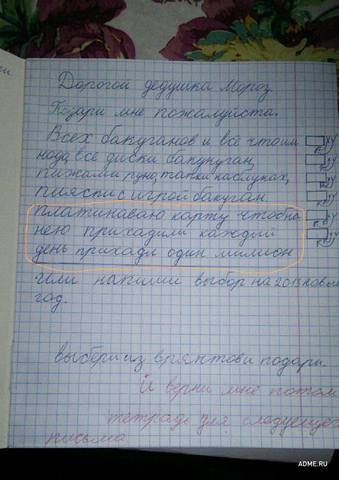 Дорогой дедушка Мороз
Пода­ри мне пожалуйста.
Всех бакуганов и всё чтоим
нода, все диски бакунуган,
пижами руна тапки наслуках,
пияспи с игрой бакуган
платинаваю карту чтобы на
нею приходили каждый
день приходл один милион
Или на твой выбор на 2013 новый
год.
выбери из врянтови подари.
И верни мне потом
тетрадь для следующего
письма.
ADME.RU